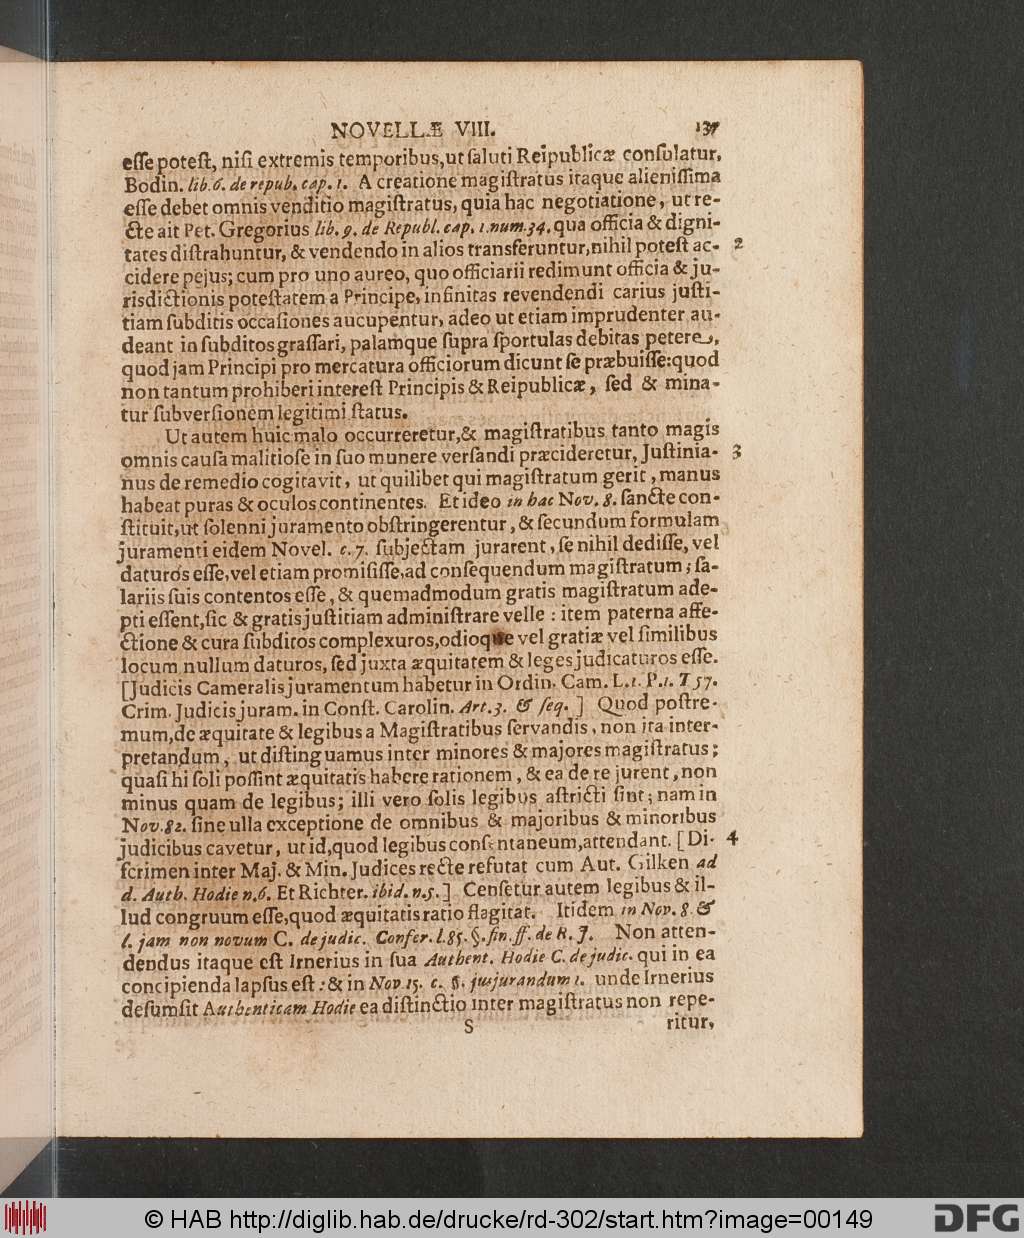 NOVELLÆ VIII. 137
eſſe poteſt, niſi extremis temporibus, ut ſaluti Reipublicæ conſulatur,
Bodin. lib. 6. de repub. cap. 1. A creatione magiſtratus itaque alieniſſima
eſſe debet omnis venditio magiſtratus, quia hac negotiatione, ut re-
cte ait Pet. Gregorius lib. 9. de Republ. cap. 1. num. 34. qua officia & digni-
tates diſtrahuntur, & vendendo in alios transferuntur, nihil poteſt ac- 2
cidere pejus; cum pro uno aureo, quo officiarii redimunt officia & ju-
risdictionis poteſtatem a Principe, infinitas revendendi carius juſti-
tiam ſubditis occaſiones aucupentur, adeo ut etiam imprudenter au-
deant in ſubditos graſſari, palamque ſupra ſportulas debitas petere,
quod jam Principi pro mercatura officiorum dicunt ſe præbuiſſe: quod
non tantum prohiberi intereſt Principis & Reipublicæ, ſed & mina-
tur ſubverſionem legitimi ſtatus.
Ut autem huic malo occurreretur, & magiſtratibus tanto magis
omnis cauſa malitioſe in ſuo munere verſandi præcideretur, Juſtinia- 3
nus de remedio cogitavit, ut quilibet qui magiſtratum gerit, manus
habeat puras & oculos continentes. Et ideo in hac Nov. 8. ſancte con-
ſtituit, ut ſolenni juramento obſtringerentur, & ſecundum formulam
juramenti eidem Novel. c. 7. ſubjectam jurarent, ſe nihil dediſſe, vel
daturos eſſe, vel etiam promiſiſſe, ad conſequendum magiſtratum; ſa-
lariis ſuis contentos eſſe, & quemadmodum gratis magiſtratum ade-
pti eſſent, ſic & gratis juſtitiam adminiſtrare velle : item paterna affe-
ctione & cura ſubditos complexuros, odioque vel gratiæ vel ſimilibus
locum nullum daturos, ſed juxta æquitatem & leges judicaturos eſſe.
[Judicis Cameralis juramentum habetur in Ordin. Cam. L. 1. P. 1. T 57.
Crim. Judicis juram. in Conſt. Carolin. Art. 3. & ſeq. ] Quod poſtre-
mum, de æquitate & legibus a Magiſtratibus ſervandis, non ita inter-
pretandum, ut diſtinguamus inter minores & majores magiſtratus;
quaſi hi ſoli poſſint æquitatis habere rationem, & ea de re jurent, non
minus quam de legibus; illi vero ſolis legibus aſtricti ſint; nam in
Nov. 82. ſine ulla exceptione de omnibus & majoribus & minoribus
judicibus cavetur, ut id, quod legibus conſentaneum, attendant. [Di- 4
ſcrimen inter Maj. & Min. Judices recte refutat cum Aut. Gilken ad
d. Auth. Hodie n. 6. Et Richter. ibid. n. 5. ] Cenſetur autem legibus & il-
lud congruum eſſe, quod æquitatis ratio flagitat. Itidem in Nov. 8. &
l. jam non novum C. de judic. Confer. l. 85. §. fin. ff. de R. J. Non atten-
dendus itaque eſt Irnerius in ſua Authent. Hodie C. de judic. qui in ea
concipienda lapſus eſt : & in Nov. 15. c. §. jusjurandum 1. unde Irnerius
deſumſit Authenticam Hodie ea diſtinctio inter magiſtratus non repe-
S ritur,
© HAB http://diglib.hab.de/drucke/rd-302/start.htm?image=00149
DFG